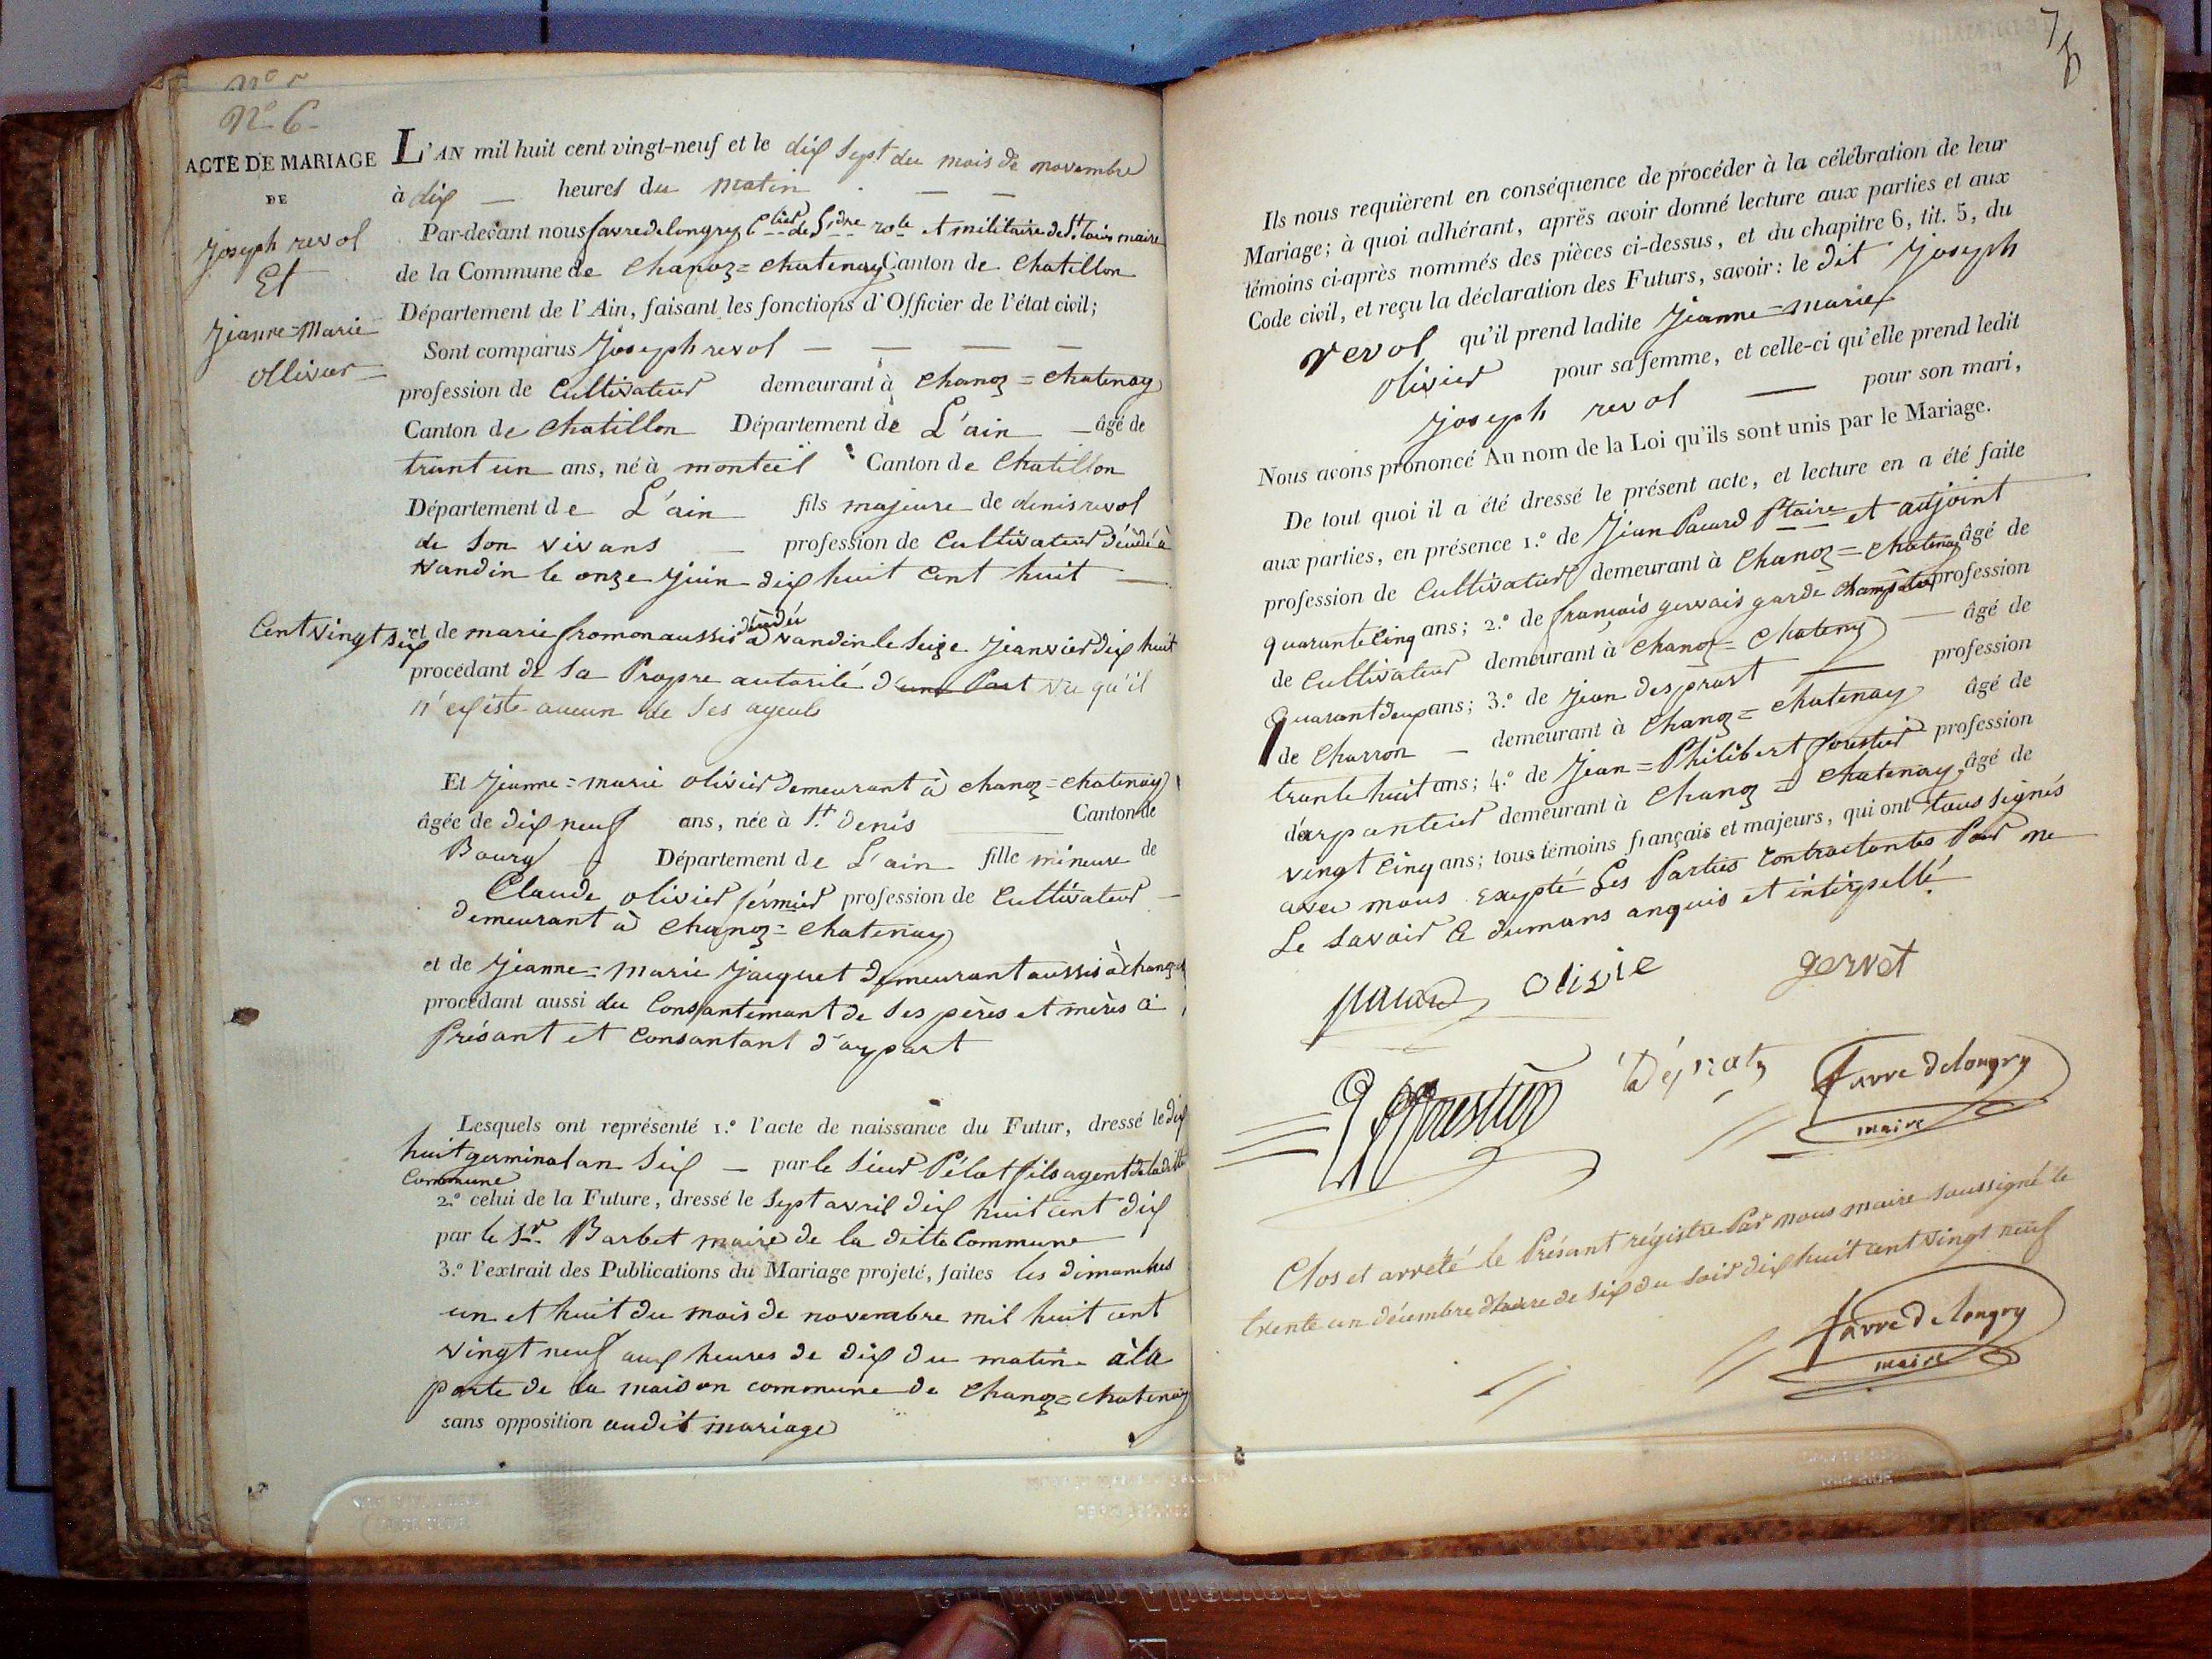 N° 6
ACTE DE MARIAGE
DE
joseph revol
Et
jeanne=Marie
ollivier
L'AN mil huit cent vingt-neuf et le dix sept du mois de novembre
à dix heures du matin
Par-devant nous favre de longry Clier de L'dre role et militaire de St. Louis maire
de la Commune de Chanoz=chatenay Canton de Chatillon
Département de l'Ain, faisant les fonctions d'Officier de l'état civil;
Sont comparus joseph revol
profession de Cultivateur demeurant à Chanoz=chatenay
Canton de Chatillon Département de L'ain âgé de
trant un ans, né à monteil Canton de Chatillon
Département de L'ain fils majeure de denis revol
de son vivans profession de Cultivateur déudé à
vandin le onze juin dix huit cent huit
et de marie fromon aussis déudéi à vandin le seize jeanvier dix huit
Cent vingt six
procédant de sa Propre autorité d'une Part vu qu'il
n'existe aucun de ses ayeuls
Et jeanne=marie olivier demeurant à chanoz=chatenay
âgée de dix neuf ans, née à St. denis Canton de
Bourg Département de L'ain fille mineure de
Claude olivier férmier profession de Cultivateur
demeurant à Chanoz=chatenay
et de jeanne=marie jacquet demeurant aussis à chanoz
procédant aussi du Consantemant de ses pères et mères à
Présant et consantant d'aupart
Lesquels ont représenté 1.° l'acte de naissance du Futur, dressé le dix
huit germinal an six par le sieur Pélot fils agent de la ditte
Commune
2.° celui de la Future, dressé le sept avril dix huit cent dix
par le Sr. Barbet maire de la ditte Commune
3.° l'extrait des Publications du Mariage projeté, faites les dimanches
un et huit du mois de novembre mil huit cent
vingt neuf aux heures de dix du matin à la
porte de la maison commune de Chanoz=chatenay
sans opposition audit mariage
7
Ils nous requièrent en conséquence de procéder à la célébration de leur
Mariage; à quoi adhérant, après avoir donné lecture aux parties et aux
témoins ci-après nommés des pièces ci-dessus, et du chapitre 6, tit. 5, du
Code civil, et reçu la déclaration des Futurs, savoir: le dit joseph
revol qu'il prend ladite jeanne=marie
olivier pour sa femme, et celle-ci qu'elle prend ledit
joseph revol pour son mari,
Nous avons prononcé Au nom de la Loi qu'ils sont unis par le Mariage.
De tout quoi il a été dressé le présent acte, et lecture en a été faite
aux parties, en présence 1.° de jean Pacard Ptaire et adjoint
profession de Cultivateur demeurant à Chanoz=chatenay âgé de
quarante cinq ans; 2.° de francois gervais garde champêtre profession
de Cultivateur demeurant à Chanoz=chateny âgé de
quarant deux ans; 3.° de jean desprast profession
de Charron demeurant à Chanoz=chatenay âgé de
trante huit ans; 4.° de jean=Philibert forestier profession
d'arpanteur demeurant à Chanoz=chatenay âgé de
vingt cinq ans; tous témoins français et majeurs, qui ont tous signés
avec nous exepté les Parties contractantes Pour ne
Le savoir à dumans anquis et intérpellé.
pacard olivie gervet
Déprats
P forestier
favre de longry
maire
Clos et arrêté le Présant régistre Par nous maire soussigné le
trente un décembre d'heure de six du soir dix huit cent vingt neuf
favre de longry
maire